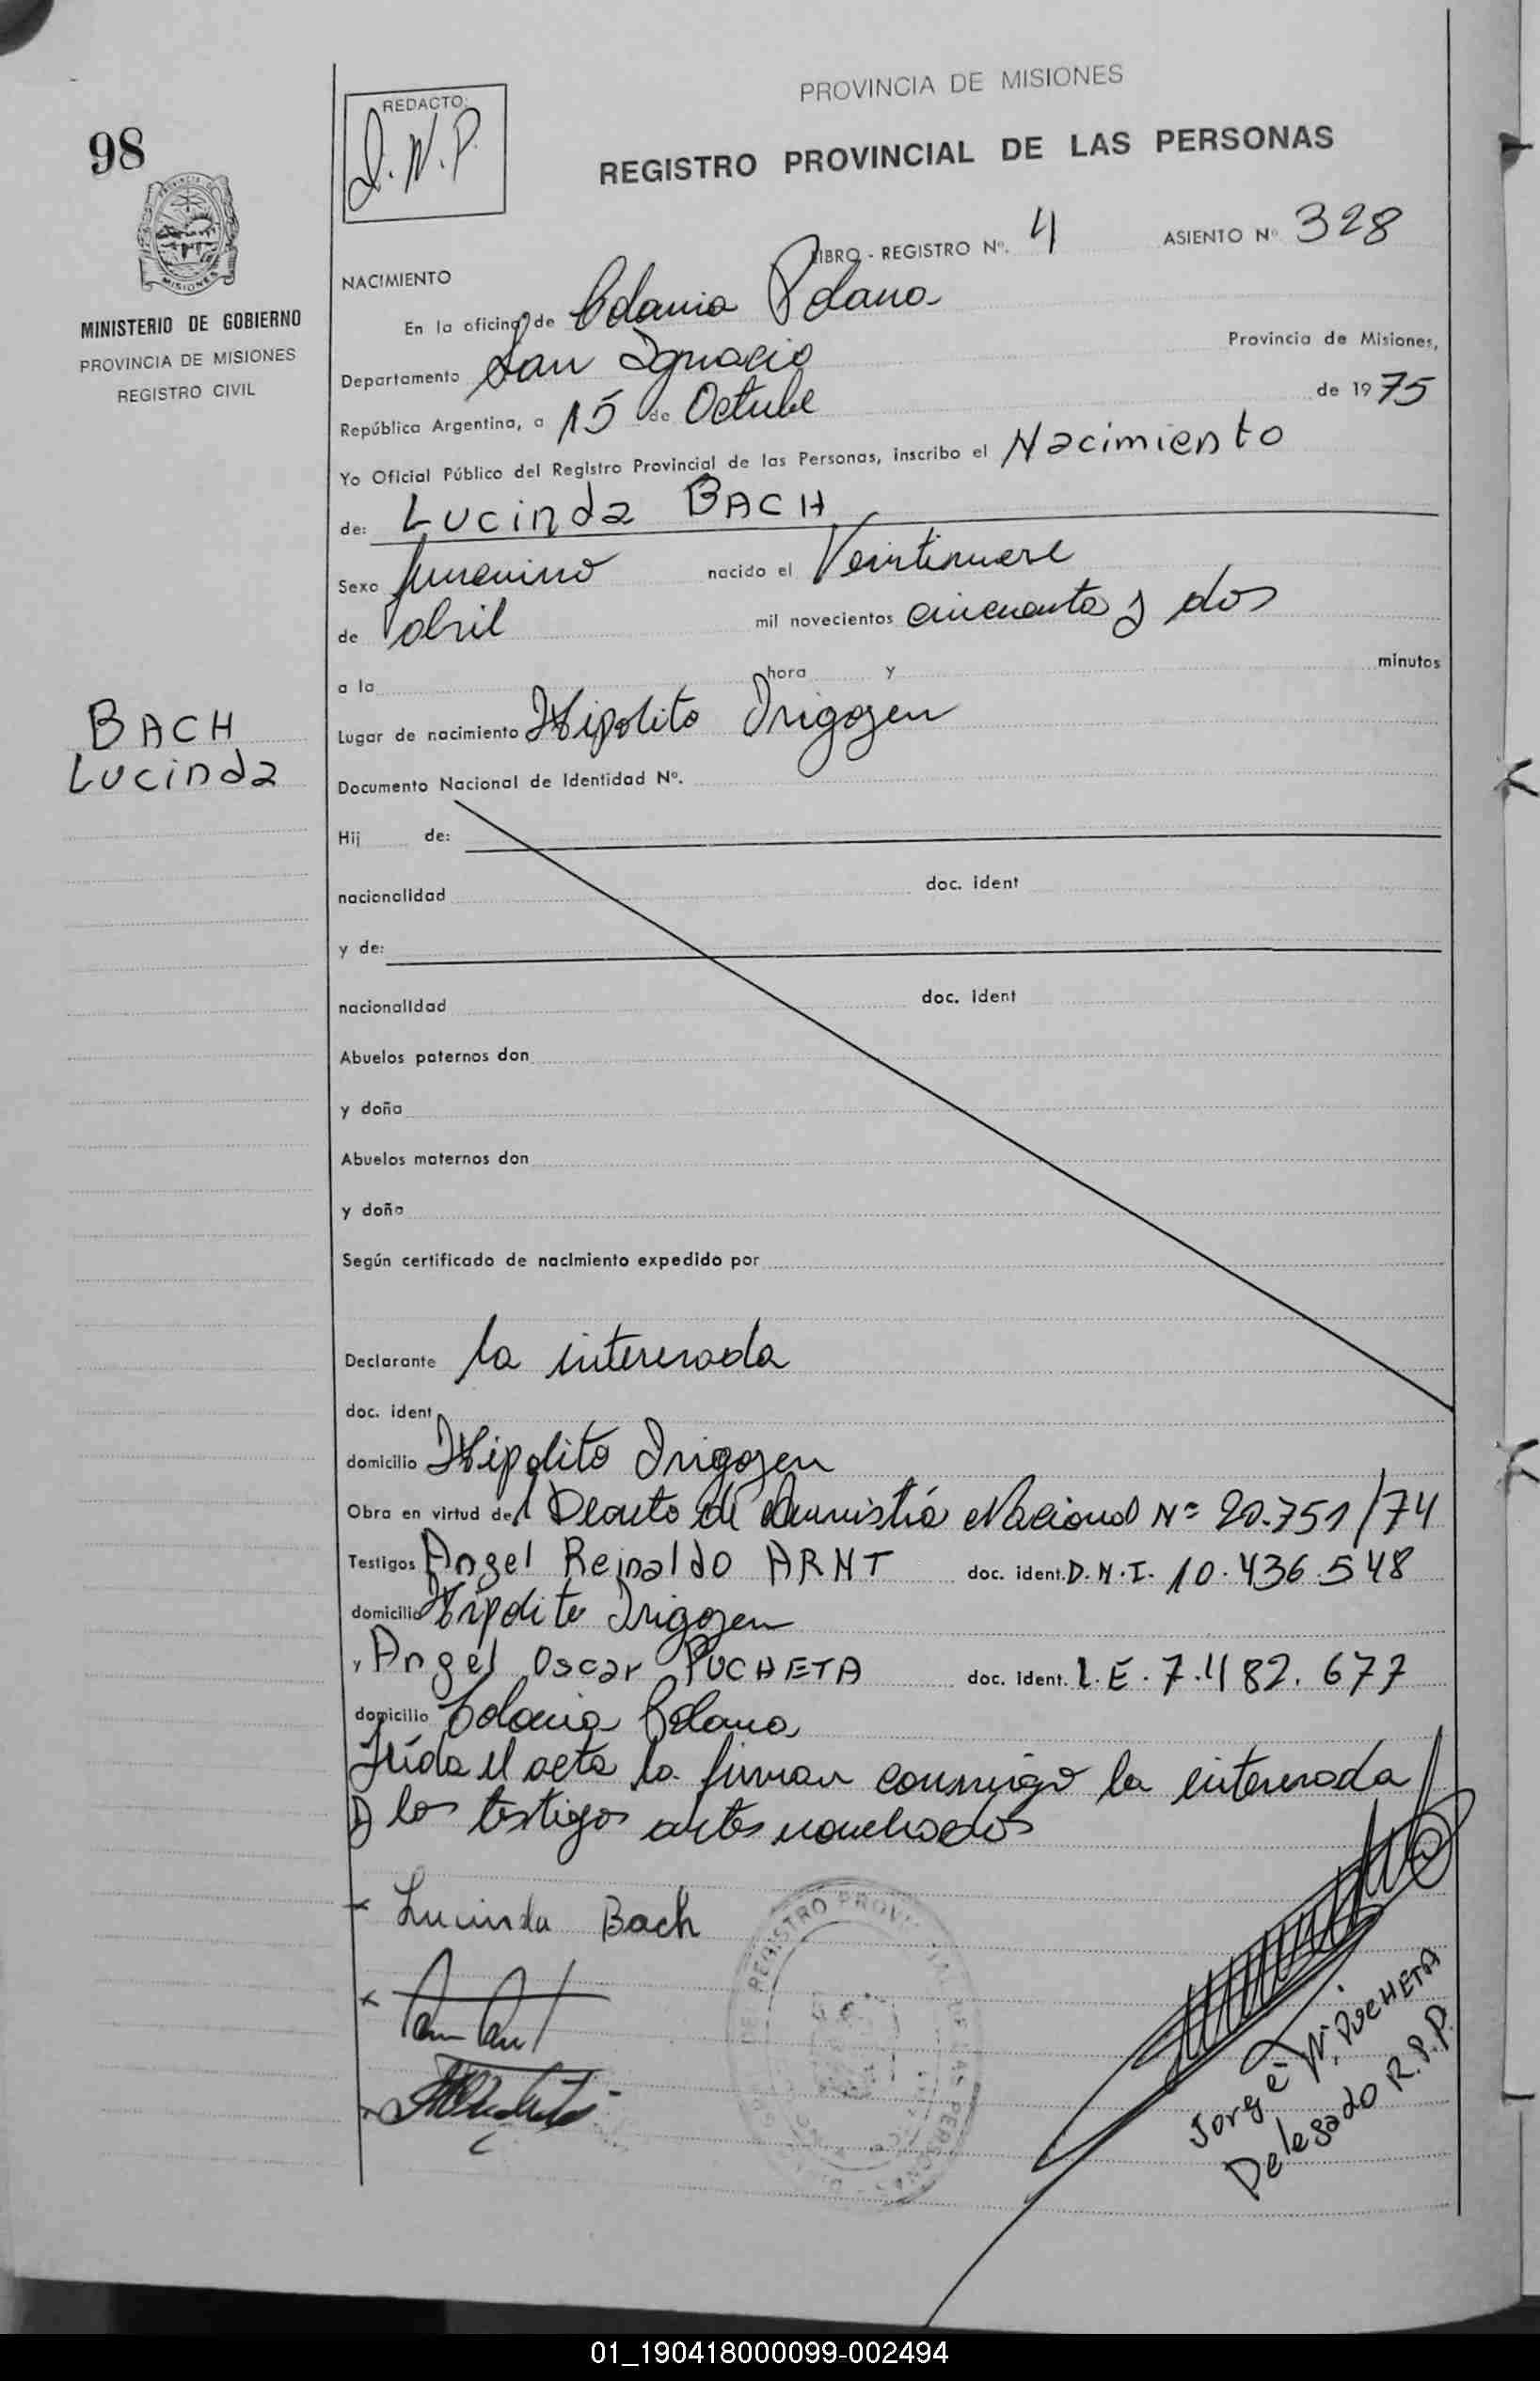 PROVINCIA DE MISIONES
REDACTO:
J. W. P.
98
REGISTRO PROVINCIAL DE LAS PERSONAS
LIBRO - REGISTRO Nº. 4 ASIENTO Nº 328
NACIMIENTO
MINISTERIO DE GOBIERNO
PROVINCIA DE MISIONES
REGISTRO CIVIL
En la oficina de Colonia Polana
Departamento San Ignacio Provincia de Misiones,
República Argentina, a 15 de Octube de 1975
Yo Oficial Público del Registro Provincial de las Personas, inscribo el Nacimiento
de: Lucinda BACH
Sexo femenino nacido el Veintinueve
de abril mil novecientos cincuenta y dos
a la hora y minutos
BACH
Lucinda
Lugar de nacimiento Hipolito Irigoyen
Documento Nacional de Identidad Nº.
Hij de:
nacionalidad doc. ident
y de:
nacionalidad doc. ident
Abuelos paternos don
y doña
Abuelos maternos don
y doña
Según certificado de nacimiento expedido por
Declarante la interesada
doc. ident
domicilio Hipolito Irigoyen
Obra en virtud del Decreto de Amnistía Nacional Nº 20.751/74
Testigos Angel Reinaldo ARNT doc. ident. D.N.I. 10.436.548
domicilio Hipolito Irigoyen
y Angel Oscar PUCHETA doc. ident. L.E. 7.482.677
domicilio Colonia Polana
leída el acta la firman conmigo la interesada
y los testigos antes nombrados
Lucinda Bach
Jorge W. PUCHETA
Delegado R.P.P.
01_190418000099-002494